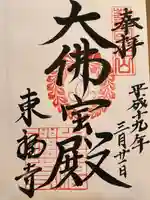 奉拝
平成十九年
三月廿一日
大佛宝殿
東福寺